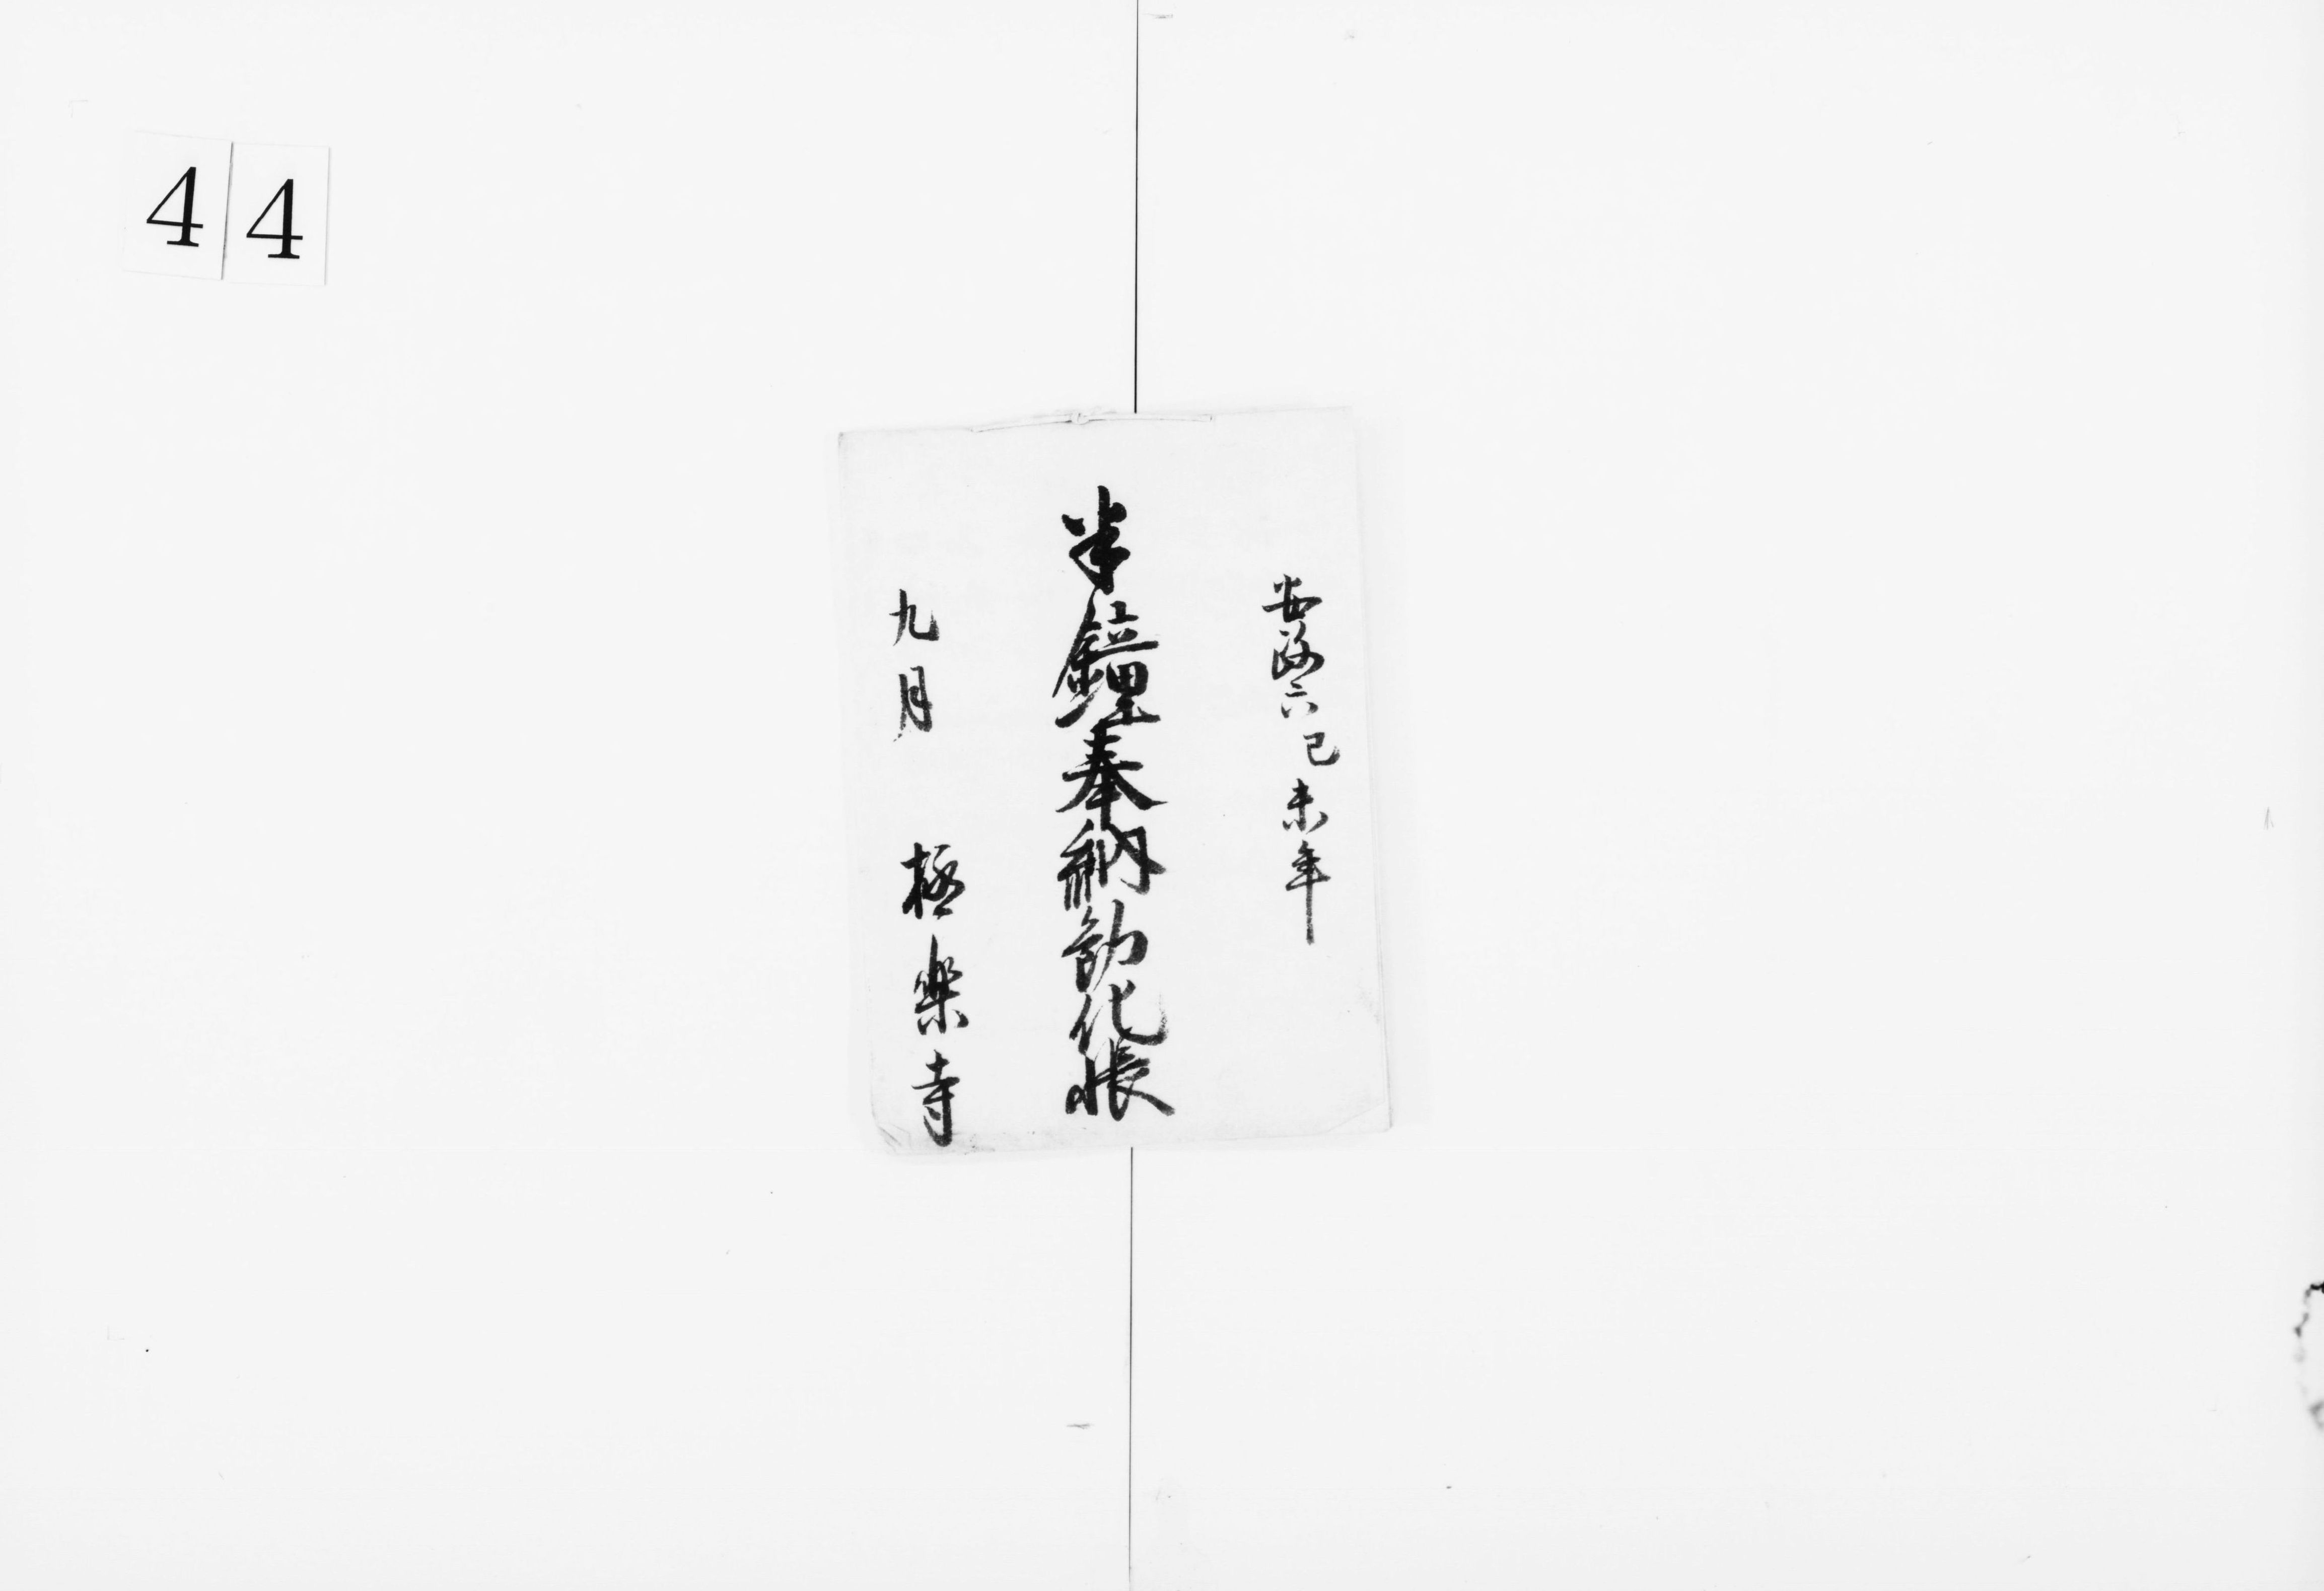 44
安政六己未年
半鐘奉納勧化帳
九月 極楽寺